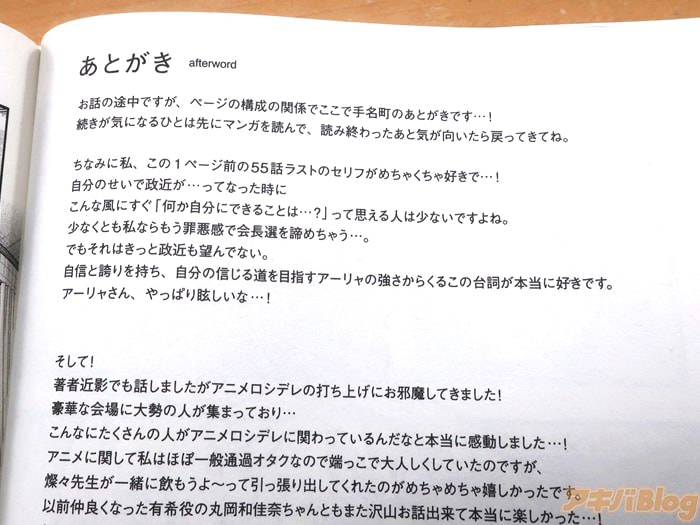 あとがき afterword
お話の途中ですが、ページの構成の関係でここで手名町のあとがきです…!
続きが気になるひとは先にマンガを読んで、読み終わったあと気が向いたら戻ってきてね。
ちなみに私、この1ページ前の55話ラストのセリフがめちゃくちゃ好きで…!
自分のせいで政近が…ってなった時に
こんな風にすぐ「何か自分にできることは…?」って思える人は少ないですよね。
少なくとも私ならもう罪悪感で会長選を諦めちゃう…。
でもそれはきっと政近も望んでない。
自信と誇りを持ち、自分の信じる道を目指すアーリャの強さからくるこの台詞が本当に好きです。
アーリャさん、やっぱり眩しいな…!
そして!
著者近影でも話しましたがアニメロシデレの打ち上げにお邪魔してきました!
豪華な会場に大勢の人が集まっており…
こんなにたくさんの人がアニメロシデレに関わっているんだなと本当に感動しました…!
アニメに関して私はほぼ一般通過オタクなので端っこで大人しくしていたのですが、
燦々先生が一緒に飲もうよ〜って引っ張り出してくれたのがめちゃめちゃ嬉しかったです。
以前仲良くなった有希役の丸岡和佳奈ちゃんともまた沢山お話出来て本当に楽しかった…!
アキバBlog